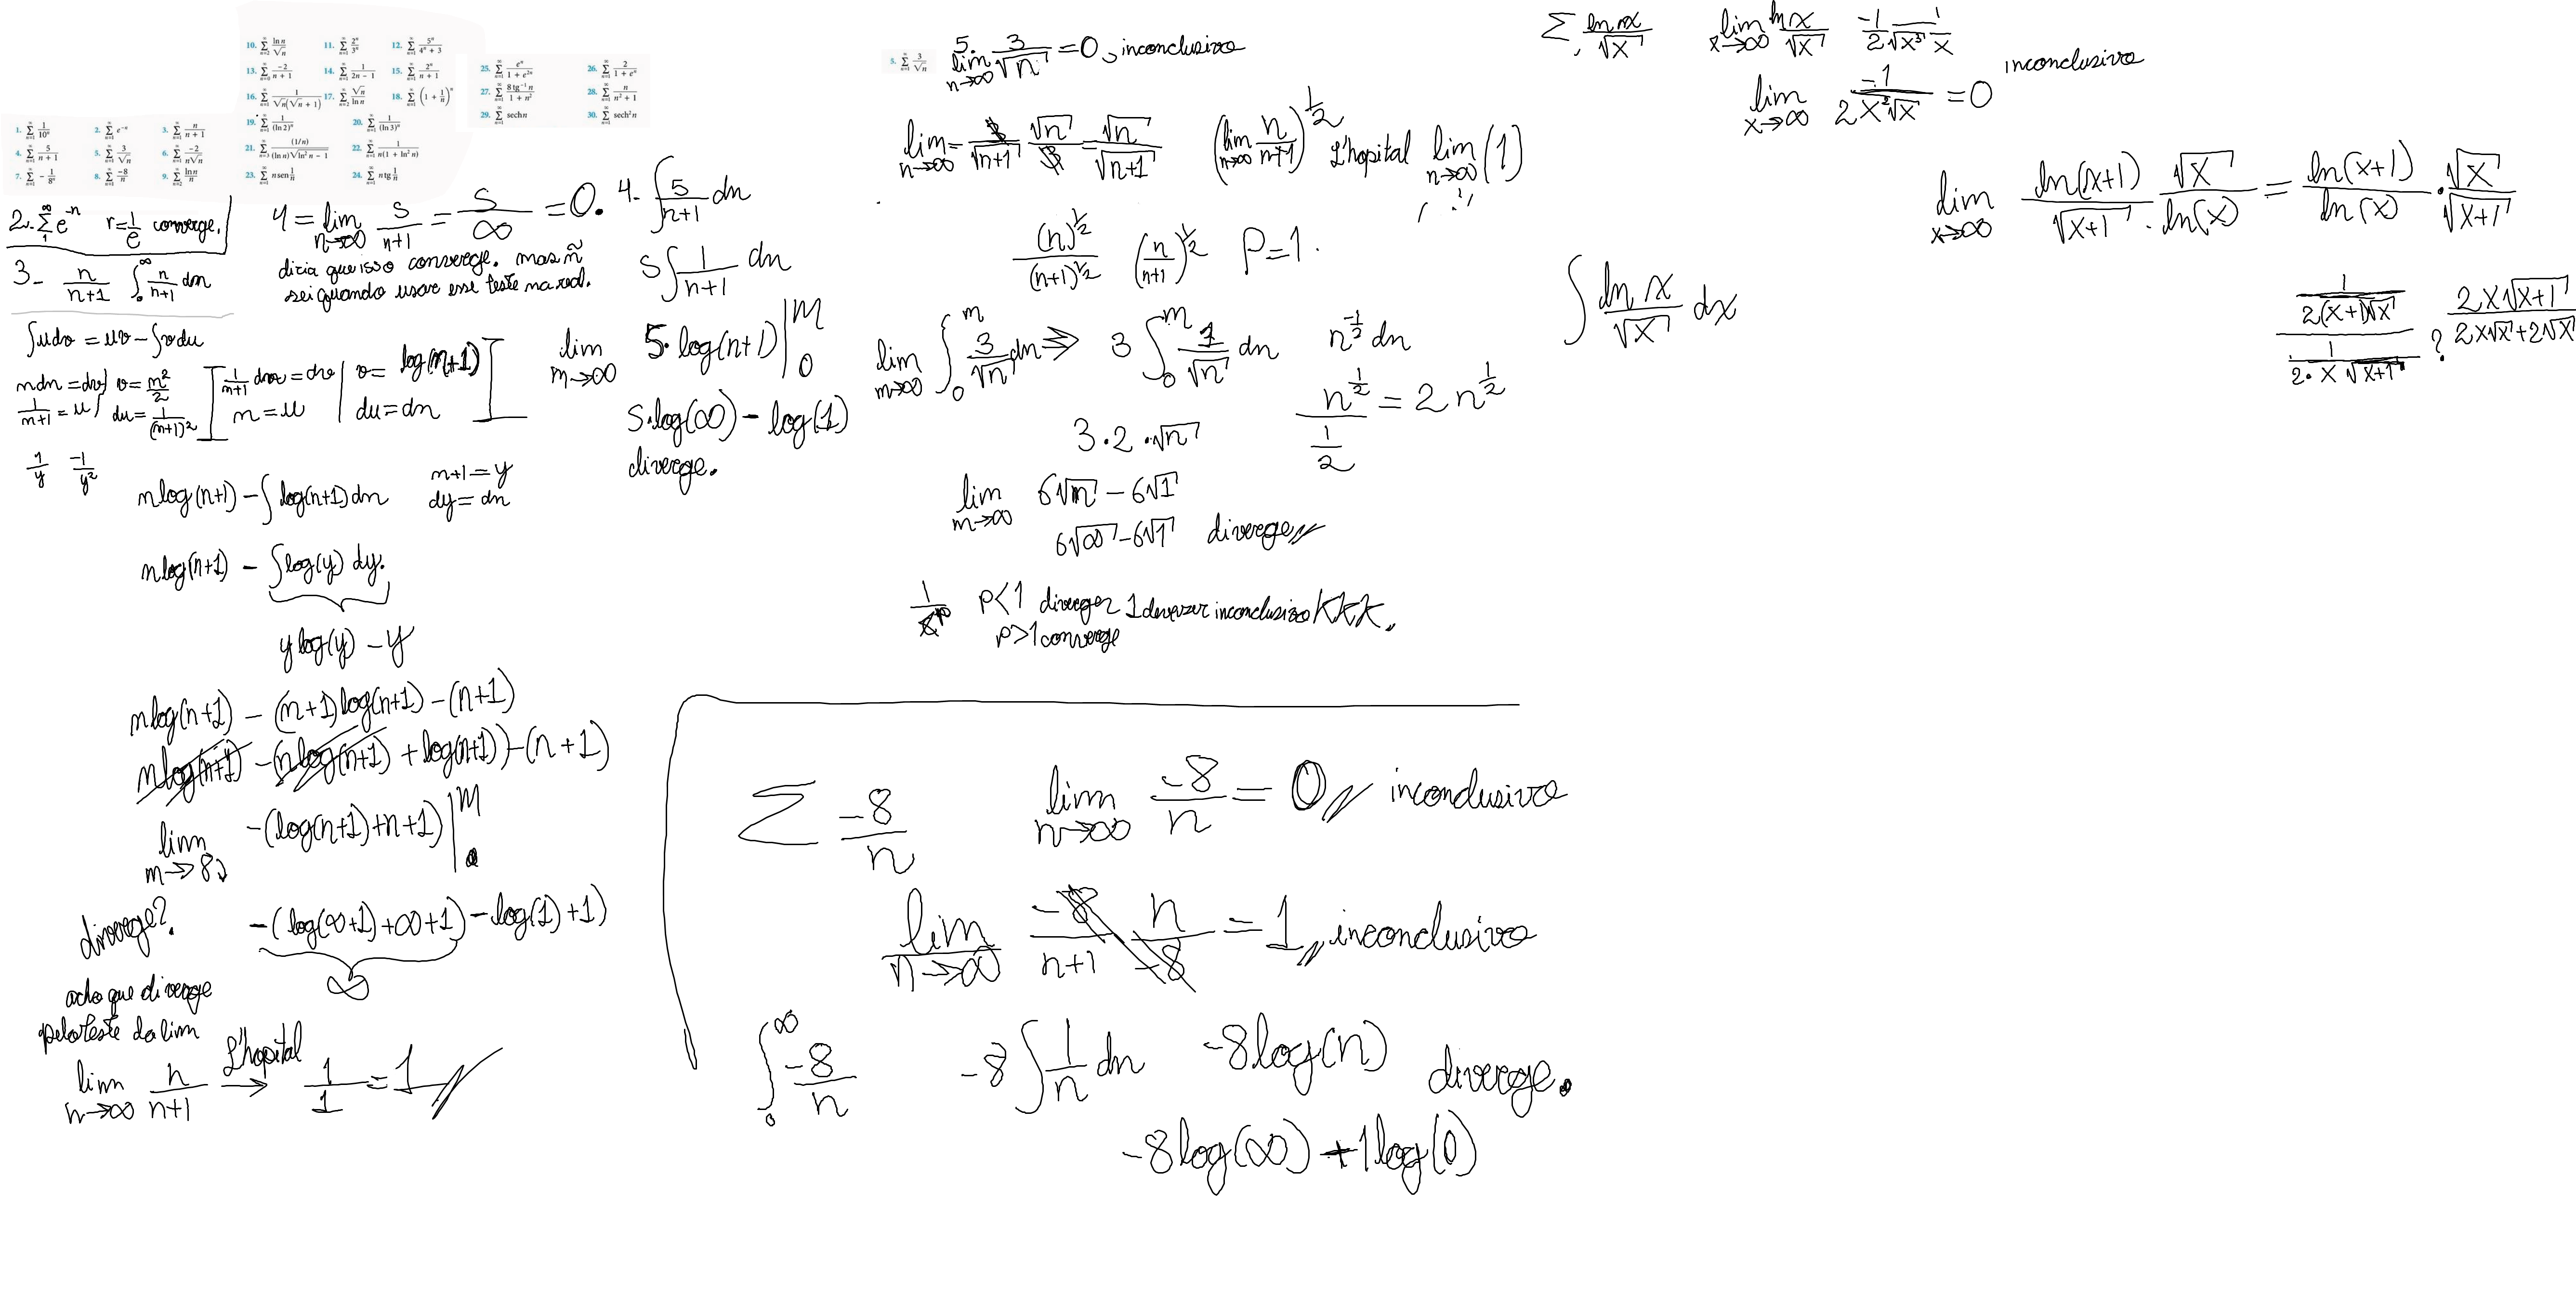 1. ∑_{n=1}^{∞} 1/10ⁿ  2. ∑_{n=1}^{∞} e⁻ⁿ  3. ∑_{n=1}^{∞} n/(n+1)
4. ∑_{n=1}^{∞} 5/(n+1)  5. ∑_{n=1}^{∞} 3/√n  6. ∑_{n=1}^{∞} -2/(n√n)
7. ∑_{n=1}^{∞} -1/8ⁿ  8. ∑_{n=1}^{∞} -8/n  9. ∑_{n=2}^{∞} ln n/n
10. ∑_{n=2}^{∞} ln n/√n  11. ∑_{n=1}^{∞} 2ⁿ/3ⁿ  12. ∑_{n=1}^{∞} 5ⁿ/(4ⁿ+3)
13. ∑_{n=0}^{∞} -2/(n+1)  14. ∑_{n=1}^{∞} 1/(2n-1)  15. ∑_{n=1}^{∞} 2ⁿ/(n+1)
16. ∑_{n=1}^{∞} 1/(√n(√n+1))  17. ∑_{n=2}^{∞} √n/ln n  18. ∑_{n=1}^{∞} (1+1/n)ⁿ
19. ∑_{n=1}^{∞} 1/(ln 2)ⁿ  20. ∑_{n=1}^{∞} 1/(ln 3)ⁿ
21. ∑_{n=3}^{∞} (1/n)/((ln n)√(ln² n-1))  22. ∑_{n=1}^{∞} 1/(n(1+ln² n))
23. ∑_{n=1}^{∞} n sen 1/n  24. ∑_{n=1}^{∞} n tg 1/n
25. ∑_{n=1}^{∞} eⁿ/(1+e²ⁿ)  26. ∑_{n=1}^{∞} 2/(1+eⁿ)
27. ∑_{n=1}^{∞} 8 tg⁻¹ n/(1+n²)  28. ∑_{n=1}^{∞} n/(n²+1)
29. ∑_{n=1}^{∞} sech n  30. ∑_{n=1}^{∞} sech² n
2. ∑_{1}^{∞} e⁻ⁿ  r=1/e converge.
3- n/(n+1)  ∫₀^∞ n/(n+1) dn
∫udv = uv - ∫vdu
ndn = dv  v = n²/2
1/(n+1) = u  du = 1/(n+1)²
1/(n+1) dn = dv  v = log(n+1)
n = u  du = dn
1/y  -1/y²
nlog(n+1) - ∫log(n+1)dn  n+1=y
dy=dn
nlog(n+1) - ∫log(y) dy.
ylog(y) - y
nlog(n+1) - (n+1)log(n+1) - (n+1)
nlog(n+1) - (nlog(n+1) + log(n+1)) - (n+1)
lim m→∞ -(log(n+1)+n+1)|₀^m
diverge?  -(log(∞+1)+∞+1) - log(1)+1)
∞
acho que diverge
pelo teste do lim
lim n→∞ n/(n+1) L'hopital → 1/1 = 1
4 = lim n→∞ 5/(n+1) = 5/∞ = 0.
diria que isso converge. mas ñ
sei quando usar esse teste na real.
4- ∫5/(n+1) dn
5∫1/(n+1) dn
lim m→∞ 5·log(n+1)|₀^m
5·log(∞) - log(1)
diverge.
5. ∑_{n=1}^{∞} 3/√n
5. lim n→∞ 3/√n = 0, inconclusivo
lim n→∞ = 3/√(n+1) √n/3 = √n/√(n+1)  (lim n→∞ n/(n+1))^{1/2}  L'hopital lim n→∞ (1)
(n)^{1/2}/(n+1)^{1/2}  (n/(n+1))^{1/2}  P=1.
lim m→∞ ∫₀^m 3/√n dn ⇒ 3∫₀^m 1/√n dn  n^{-1/2} dn
n^{1/2}/(1/2) = 2n^{1/2}
3·2·√n
lim m→∞ 6√m - 6√1
6√∞ - 6√1  diverge
p<1 diverge
p>1 converge
∑ -8/n  lim n→∞ -8/n = 0 inconclusivo
lim n→∞ -8/(n+1) n/-8 = 1, inconclusivo
∫₀^∞ -8/n  -8∫1/n dn  -8log(n)  diverge.
-8log(∞) + 1log(0)
∑₁ ln x/√x  lim x→∞ ln x/√x  -1/(2√x³) 1/x
lim x→∞ -1/(2x²√x) = 0  inconclusivo
lim x→∞ ln(x+1)/√(x+1) · √x/ln(x) = ln(x+1)/ln(x) · √x/√(x+1)
∫ ln x/√x dx
(1/(2(x+1)√x))/(1/(2·x√(x+1))) ? 2x√(x+1)/(2x√x+2√x)